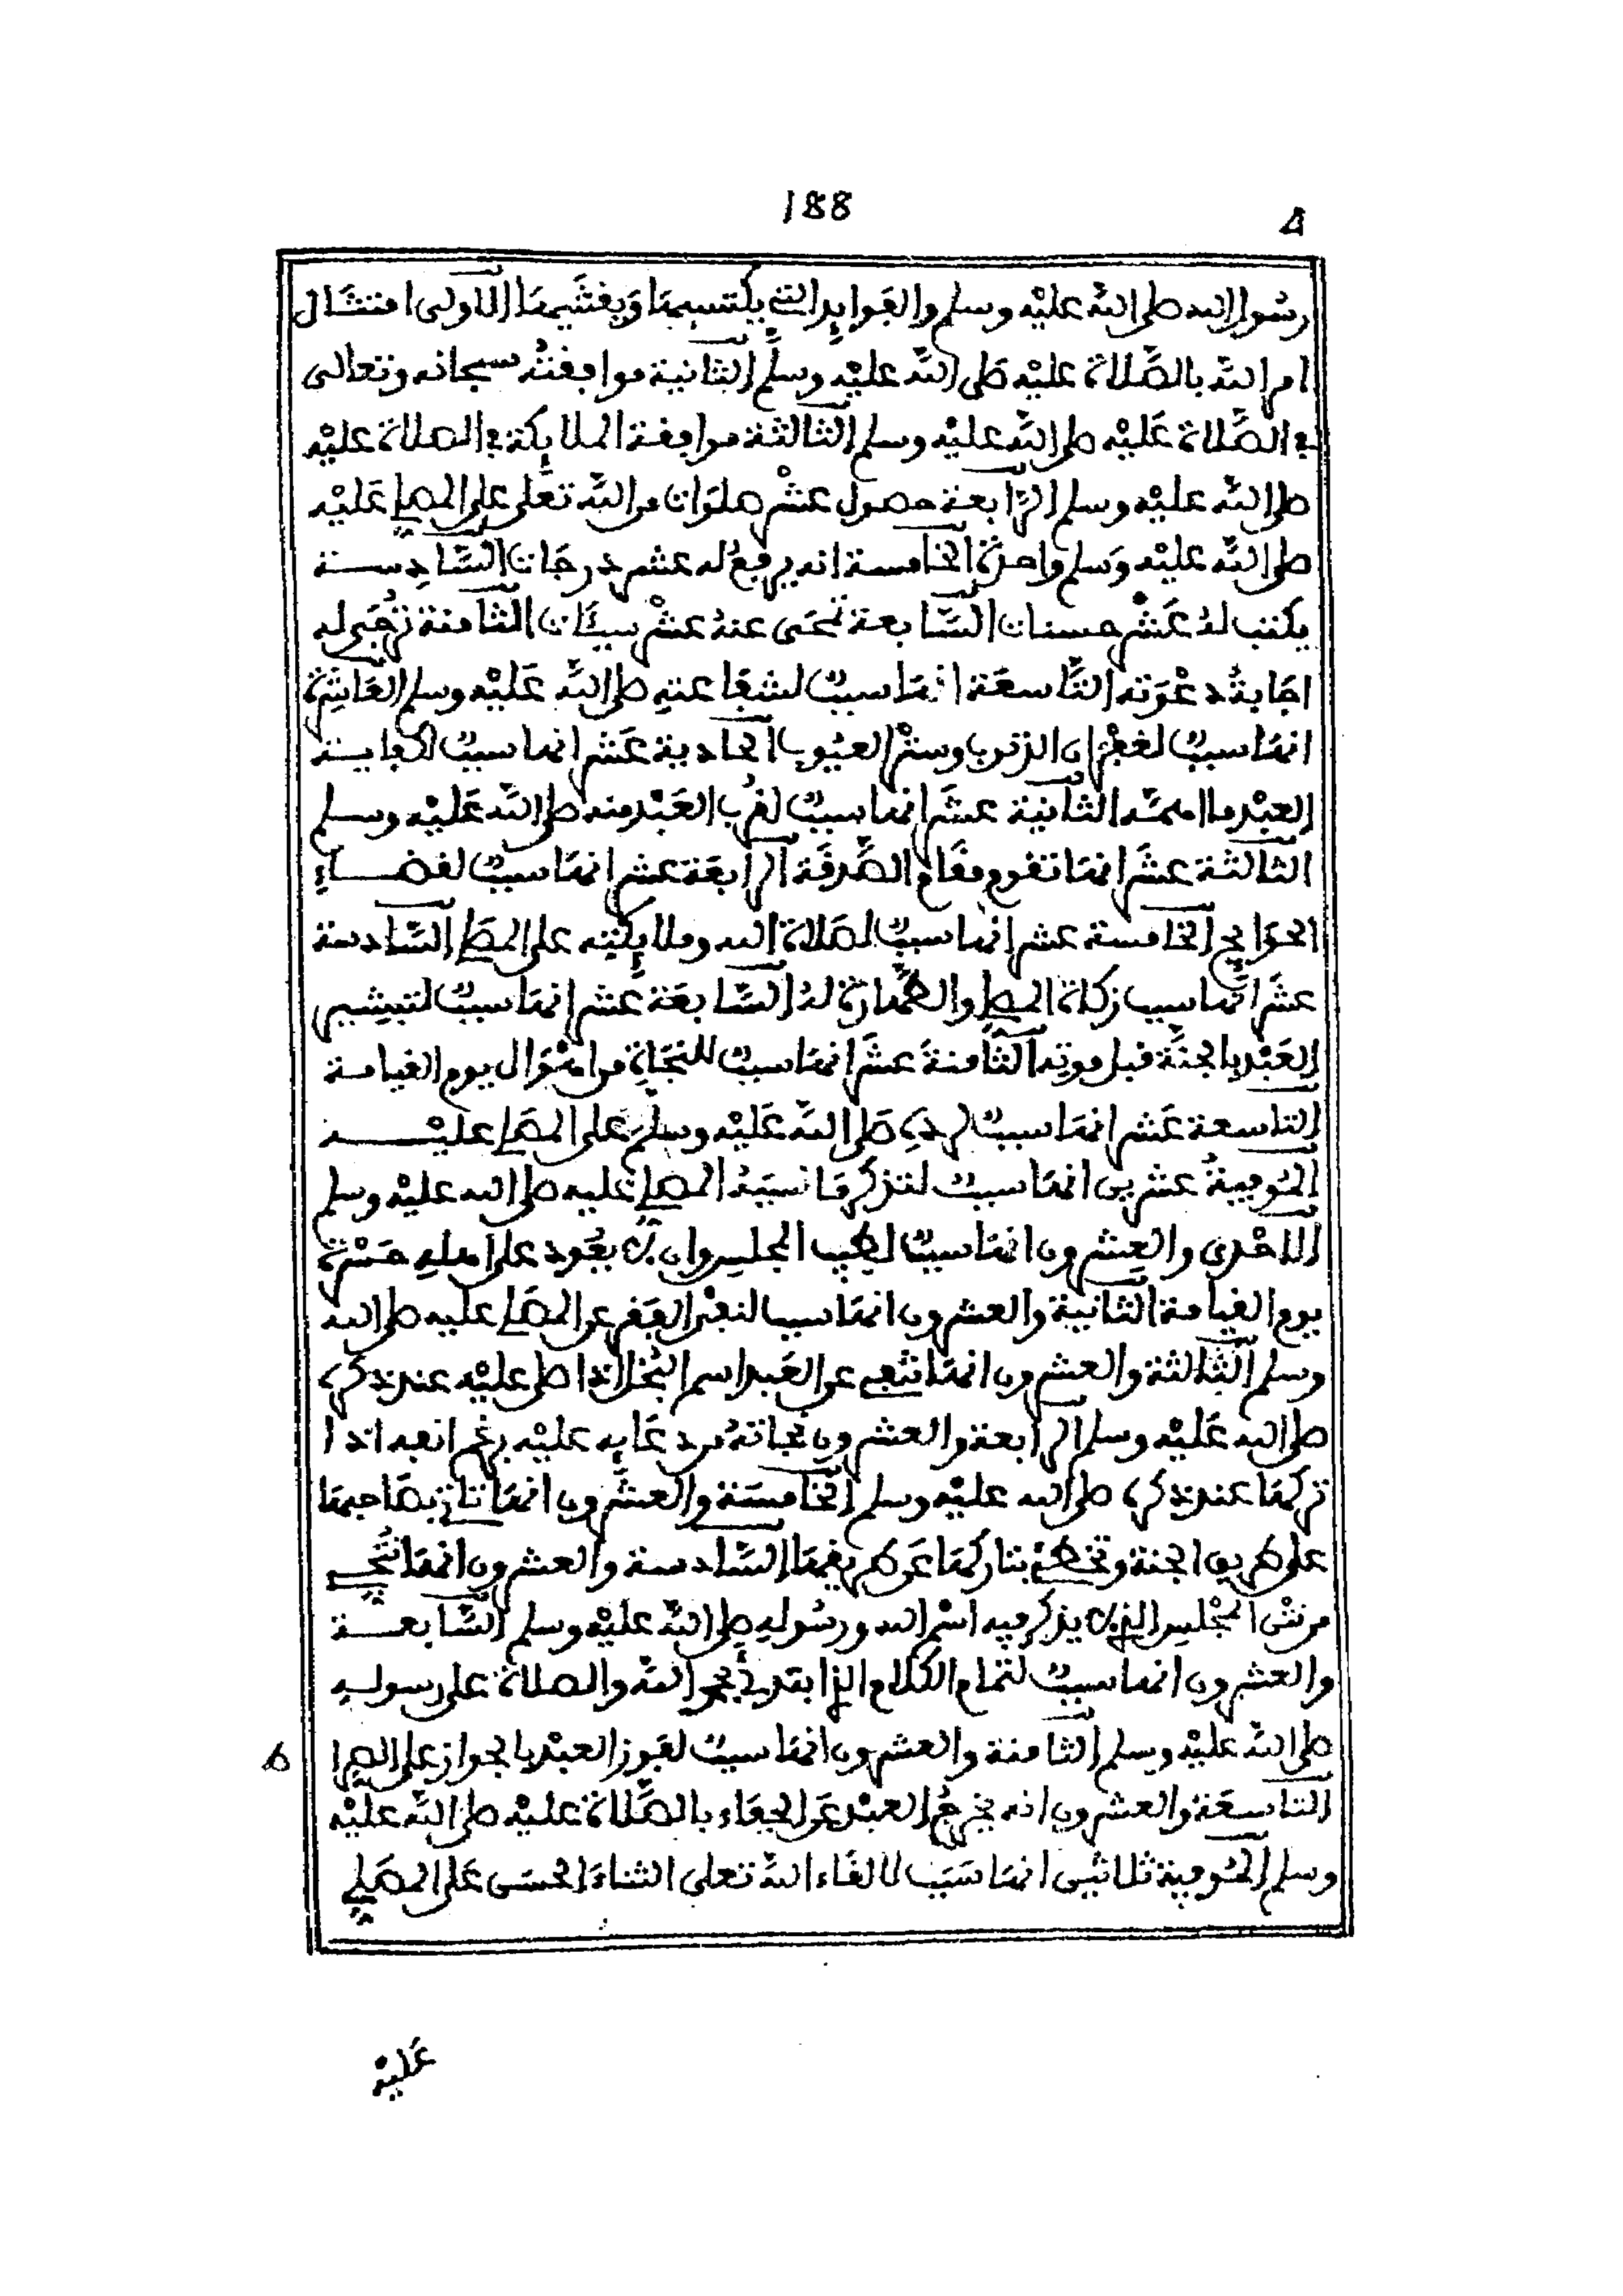 188
رسُول الله صلى اللّه عليْه وسلم والفَوايد التي يكتسبهَا وَيفتنيهَا الاولى امتثَال
امر اللّه بالصَّلاة عليْه صَلى اللّه عليْه وسلَّم الثانية موافقتُه سبحانه وتعالى
في الصَّلاة عَليْه صلى اللّه عليْه وسلم الثالثة موافقة الملايكة في الصلاة عليْه
صلى اللّه عليْه وسلم الرَّابعة حصول عشْر صلوَات من اللّه تعَلى على المصلي عَليْه
صلى اللّه عليْه وَسلم واحدة الخامسة انه يرفعُ له عشر درجَات السَّادِسة
يكتب لهُ عَشْر حسنات السَّابعة تمحَى عنهُ عشْر سيئَات الثامنة تُرْجَى له
اجَابةُ دعْوَته التَّاسعَة انهَا سببٌ لشفَاعتهِ صلى اللّه عَليْه وسلم العَاشِرة
انهَا سببٌ لغفْرَان الذنوب وستْر العيُوب الحادية عَشر انها سببٌ لكفاية
العبْد ما اهمّه الثانية عشَر انها سببٌ لقرُب العَبْد منه صلى اللّه عَليْه وسلم
الثالثة عشَر انهَا تقوم مقَام الصَّدقَة الرابعَة عشر انهَا سببٌ لقضاءِ
الحوَايج الخامسة عشر انها سببٌ لصَلاة الله وملايكتِه على المصَلي السَّادسة
عشَر انَّها سبب زكاة المصلي والطَّهارة لهُ السَّابعَة عَشر انهَا سببٌ لتبشِير
العَبْد بالجنَّة قبل موتِه الثَّامنةَ عشَر انهَا سببٌ للنجَاةِ من اهْوَال يوم القيامة
التاسعة عَشر انهَا سببٌ لردِّه صَلى اللّه عَليْه وسلمَ على المصَلي عليْه
المُوفِيةُ عشرين انهَا سببٌ لتذكر مَا نسيَهُ المصَلي عليه صلى الله عليْه وسلم
الاحْدى والعِشرون انهَا سببٌ لطيب المجلِس وان لا يعُود على اهلهِ حَسْرة
يوم القيامة الثَّانية والعشرون انهَا سبب لنفْي الفَقر عن المصَلي عليه صلى الله
وسلم الثَّالثة والعشرون انهَا تنْفي عن العَبد اسم البُخل اذا صلى عليْه عند ذكره
صلى الله عَليْه وسلم الرابعة والعشرون نجاتهُ من دعَايه عليْه برغم انفه اذا
تركهَا عند ذكره صلى الله عليْه وسلم الخامسَة والعشَرون انهَا تاتي بصَاحبهَا
على طريق الجنة وتخطئ بتاركهَا عَن طريقهَا السَّادسة والعشرون انهَا تُنْجي
من نتْن المجْلِس الذي لا يذكر فيه اسْم الله ورسُولِهِ صلى اللّه عليْه وسلم السَّابعة
والعشرون انها سببٌ لتمام الكلام الذي ابتدئ بحمد اللّه والصلاة على رسولهِ
صلى اللّه عليْه وسلم الثامنة والعشرون انهَا سببٌ لفوز العبْد بالجواز على الصرا
ط
التاسعَة والعشرون انه يخرجُ العبْد عَن الجفَاء بالصَّلاة عليْه صلى اللّه عليْه
وسلم المُوفية ثلاثين انهَا سَبَب لالقَاء اللّه تعلى الثناءَ الحسَن عَلى المصَلي
عَليْه